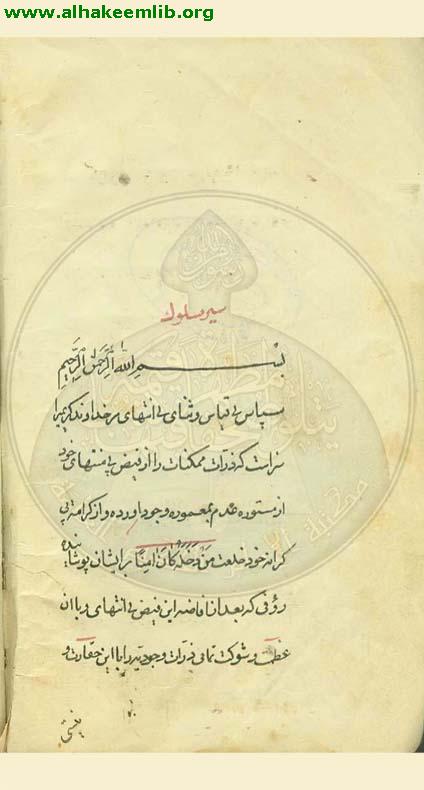 www.alhakeemlib.org
سیر سلوک
بسم الله الرحمن الرحیم
سپاس بی قیاس و ثنای بی انتهای مر خداوند کریمرا
سزاست که ذرات ممکنات را از فیض بی منتهای خود
از مستوره عدم بمعموره وجود اورده و از کرامت بی
کرانه خود خلعت من دخله کان امنا برایشان پوشانیده
رؤفی که بعد از افاضه این فیض بی انتهای و با ان
عظمت و شوکت تمامی ذرات وجودیه را با این حقارت و